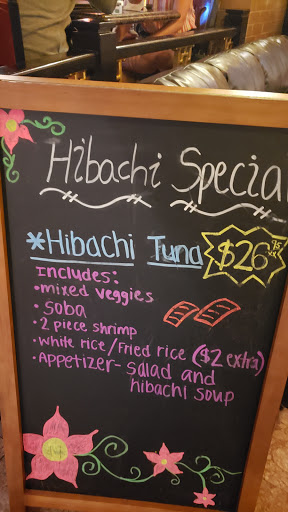 Hibachi Specia
*Hibachi Tuna $26.95
Includes:
•mixed veggies
•Soba
•2 piece shrimp
•White rice/Fried rice ($2 extra)
•Appetizer- Salad and
hibachi soup